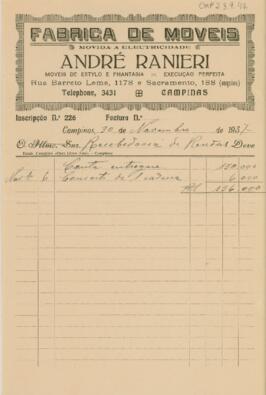 CMP 2.3.9.
FABRICA DE MOVEIS
MOVIDA A ELECTRICIDADE
ANDRÉ RANIERI
MOVEIS DE ESTYLO E PHANTASIA EXECUÇÃO PERFEITA
Rua Barreto Leme, 1178 e Sacramento, 188
Telephone, 3431 CAMPINAS
Inscripção N.º 226 Factura N.º
Campinas, 30 de Novembro de 1937
O Illmo. Snr. Recebedoria de Rendas Deve
Conta entregue 130,000
6 Concerto de 6,000
136,000